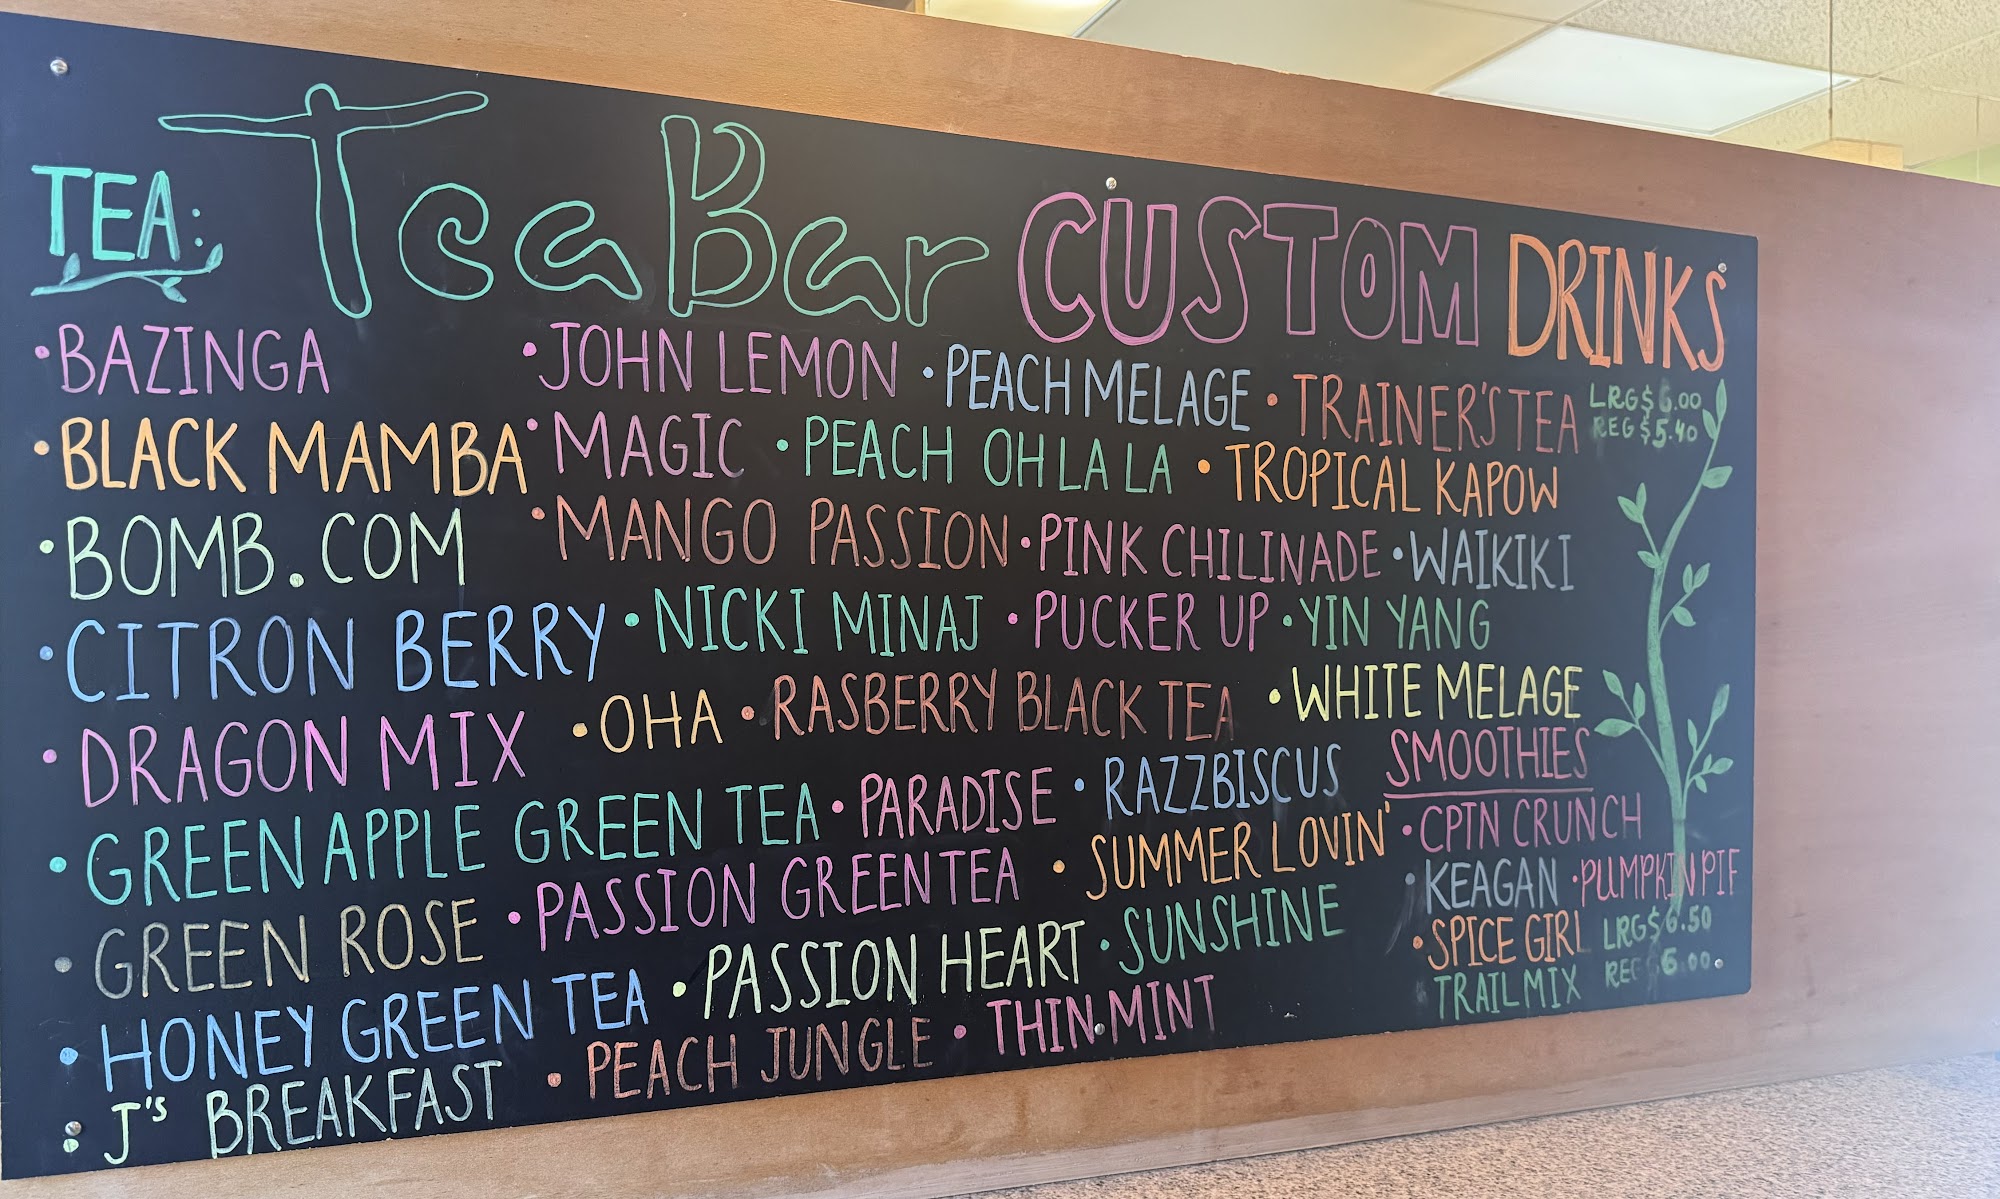 TEA:
Tea Bar CUSTOM DRINKS
• BAZINGA
• BLACK MAMBA
• BOMB.COM
• CITRON BERRY
• DRAGON MIX
• GREEN APPLE GREEN TEA
• GREEN ROSE
• HONEY GREEN TEA
• J's BREAKFAST
• JOHN LEMON
• MAGIC
• MANGO PASSION
• NICKI MINAJ
• OHA
• PARADISE
• PASSION GREEN TEA
• PASSION HEART
• PEACH JUNGLE
• PEACH MELAGE
• PEACH OH LA LA
• PINK CHILINADE
• PUCKER UP
• RASBERRY BLACK TEA
• RAZZBISCUS
• SUMMER LOVIN'
• SUNSHINE
• THIN MINT
• TRAINER'S TEA
• TROPICAL KAPOW
• WAIKIKI
• YIN YANG
• WHITE MELAGE
LRG $6.00
REG $5.40
SMOOTHIES
• CPTN CRUNCH
• KEAGAN • PUMPKIN PIE
• SPICE GIRL
TRAIL MIX
LRG $6.50
REG $6.00